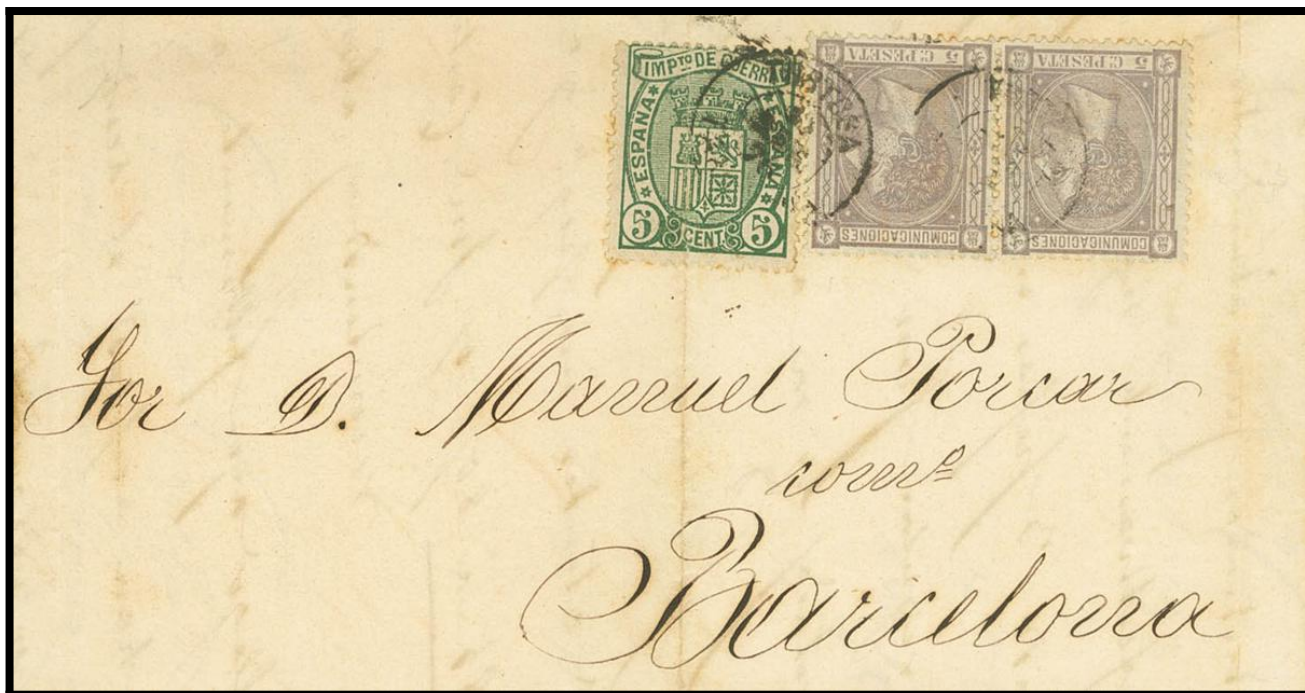 IMPTO DE GUERRA
ESPAÑA
ESPAÑA
5 CENT. 5
5 C. PESETA
COMUNICACIONES
5 C. PESETA
COMUNICACIONES
Sor D. Manuel Porcar
como
Barcelona